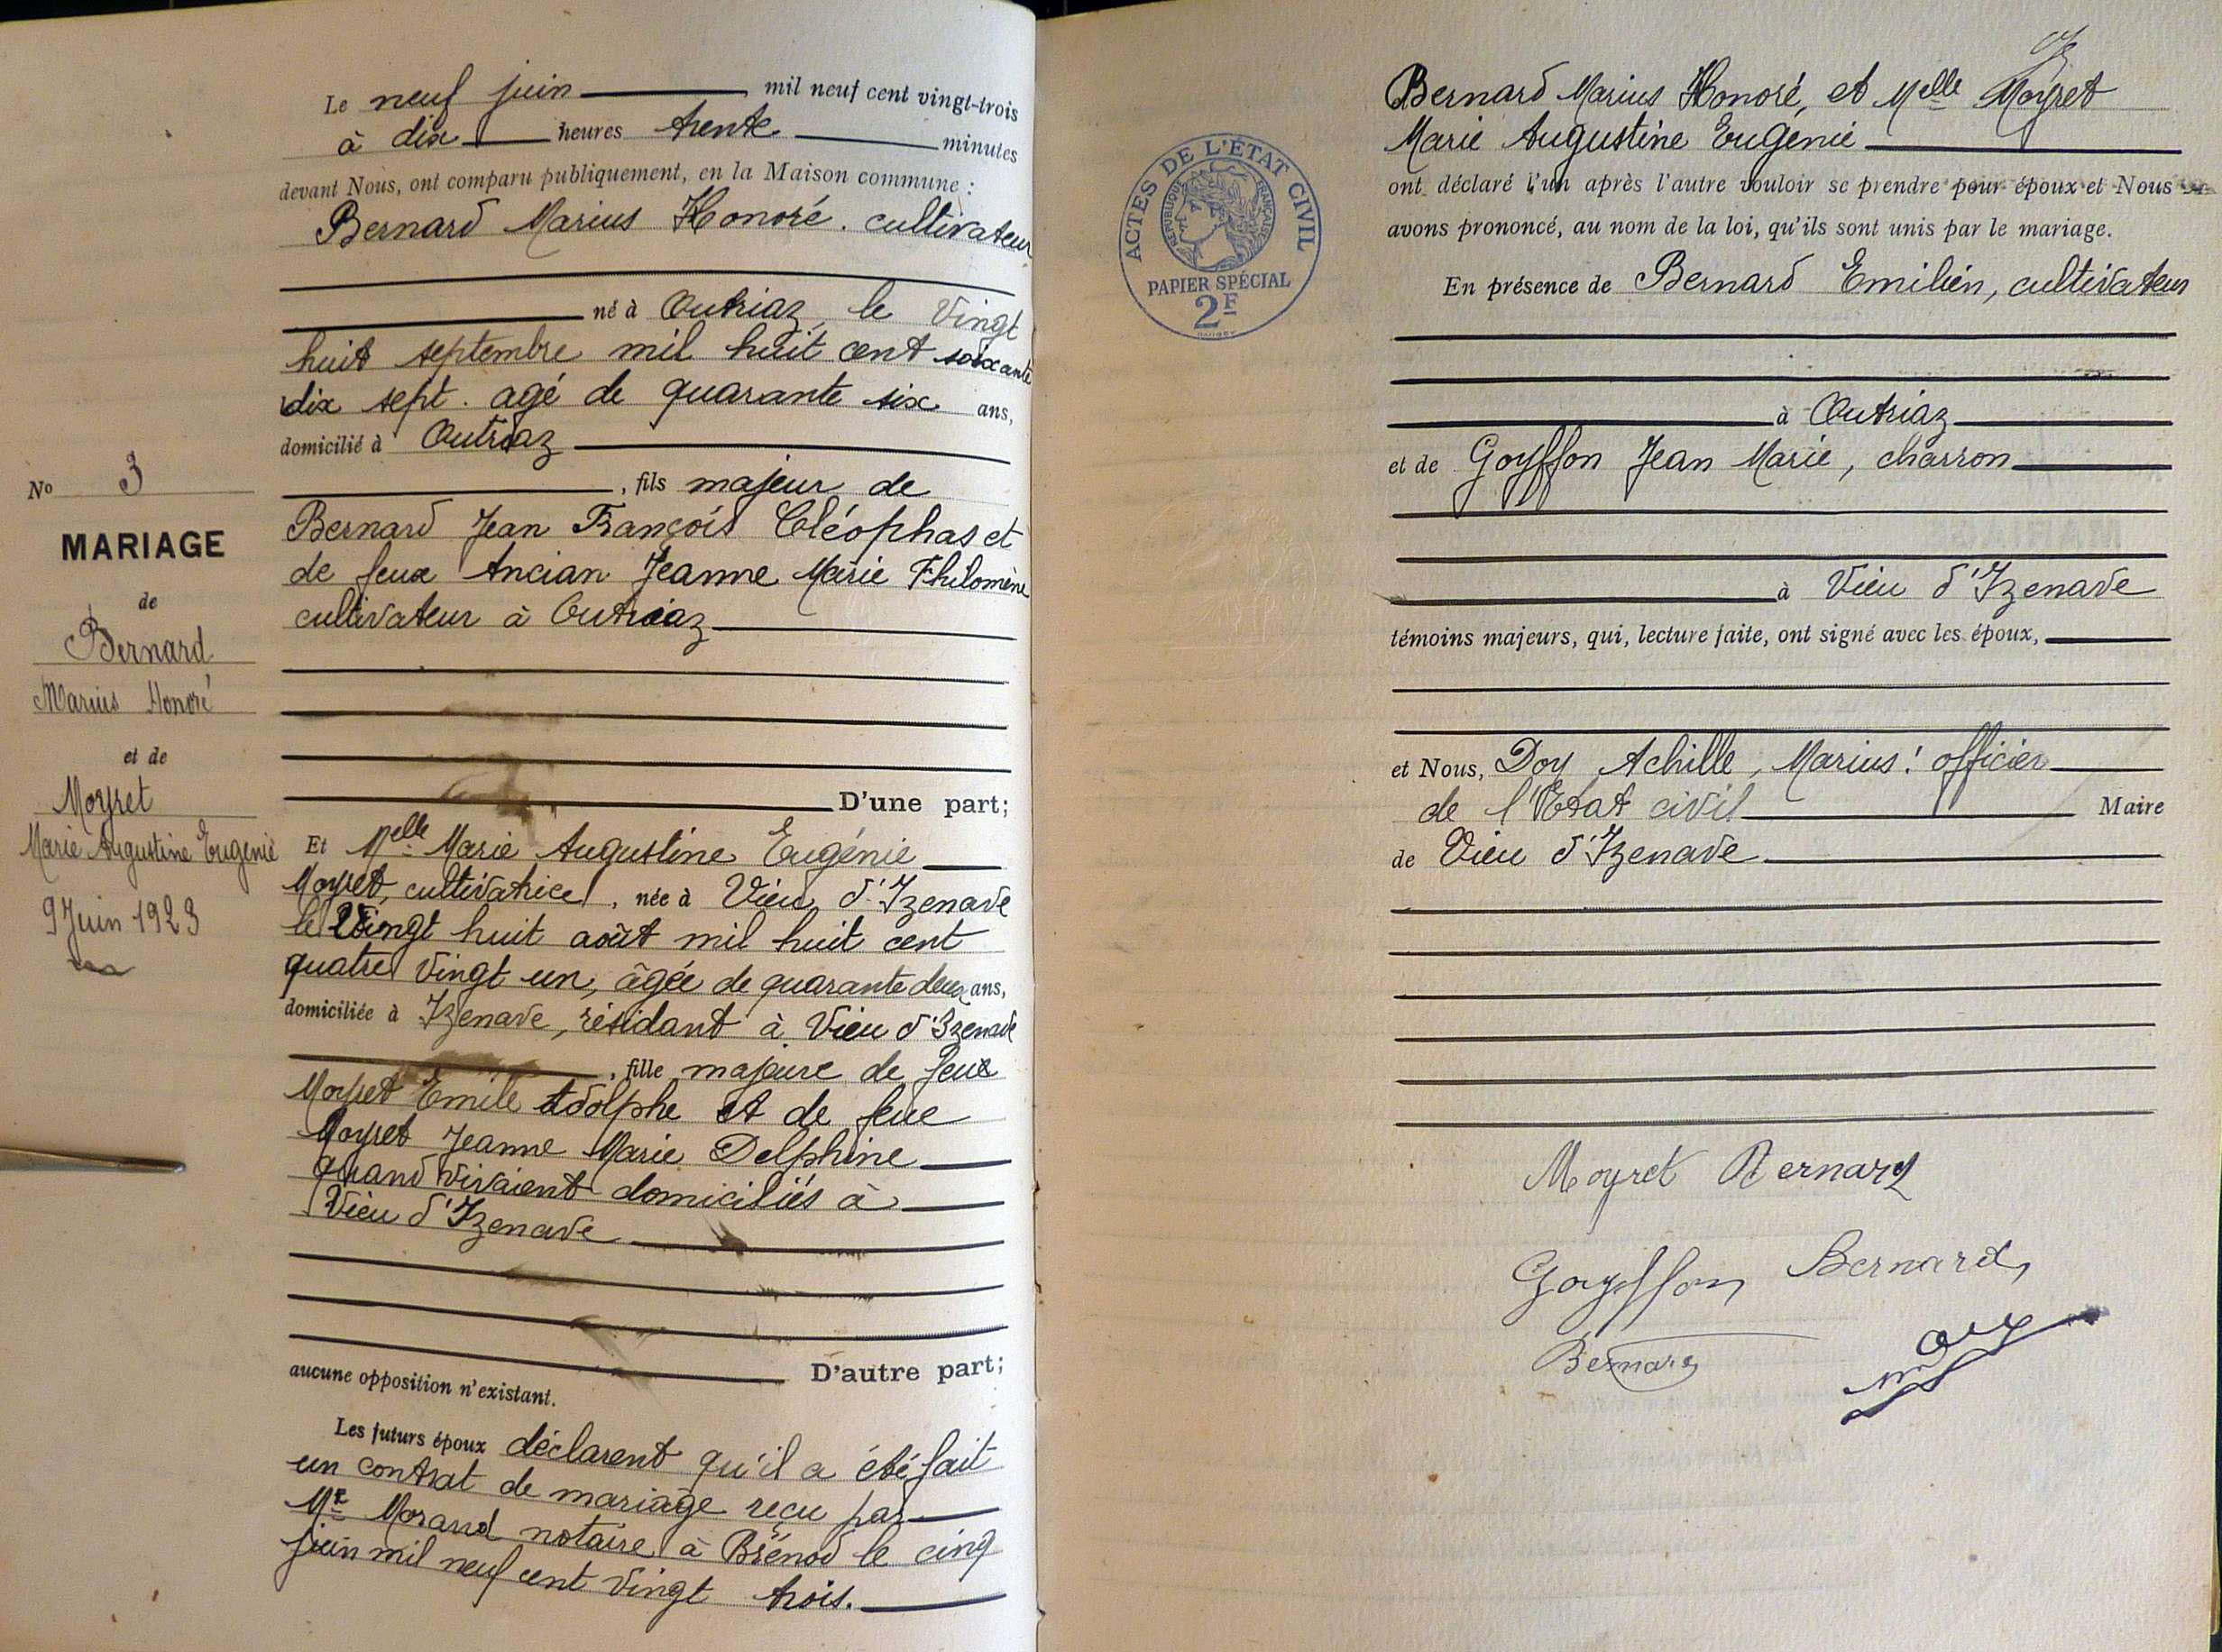 N° 3
MARIAGE
de
Bernard
Marius Honoré
et de
Moyret
Marie Augustine Eugénie
9 Juin 1923
Le neuf juin mil neuf cent vingt-trois
à dix heures trente minutes
devant Nous, ont comparu publiquement, en la Maison commune :
Bernard Marius Honoré. cultivateur
né à Outriaz, le vingt
huit septembre mil huit cent soixante
dix sept. agé de quarante six ans,
domicilié à Outriaz
, fils majeur de
Bernard Jean François Cléophas et
de feue Ancian Jeanne Marie Philomène
cultivateur à Outriaz
D'une part;
Et Melle Marie Augustine Eugénie
Moyret, cultivatrice, née à Vieu d'Izenave
le Vingt huit août mil huit cent
quatre vingt un, âgée de quarante deux ans,
domiciliée à Izenave, résidant à Vieu d'Izenave
, fille majeure de feu
Moyret Emile Adolphe et de feue
Moyret Jeanne Marie Delphine
quand vivaient domiciliés à
Vieu d'Izenave
D'autre part;
aucune opposition n'existant.
Les futurs époux déclarent qu'il a été fait
un contrat de mariage reçu par
Me Morand notaire à Brénod le cinq
juin mil neuf cent vingt trois.
ACTES DE L'ÉTAT CIVIL
RÉPUBLIQUE FRANÇAISE
PAPIER SPÉCIAL
2F
Bernard Marius Honoré, et Melle Moyret
Marie Augustine Eugénie
ont déclaré l'un après l'autre vouloir se prendre pour époux et Nous
avons prononcé, au nom de la loi, qu'ils sont unis par le mariage.
En présence de Bernard Emilien, cultivateur
à Outriaz
et de Goyffon Jean Marie, charron
à Vieu d'Izenave
témoins majeurs, qui, lecture faite, ont signé avec les époux,
et Nous, Doy Achille, Marius! officier
de l'Etat civil Maire
de Vieu d'Izenave
Moyret Bernard
Goyffon Bernard
Bernard